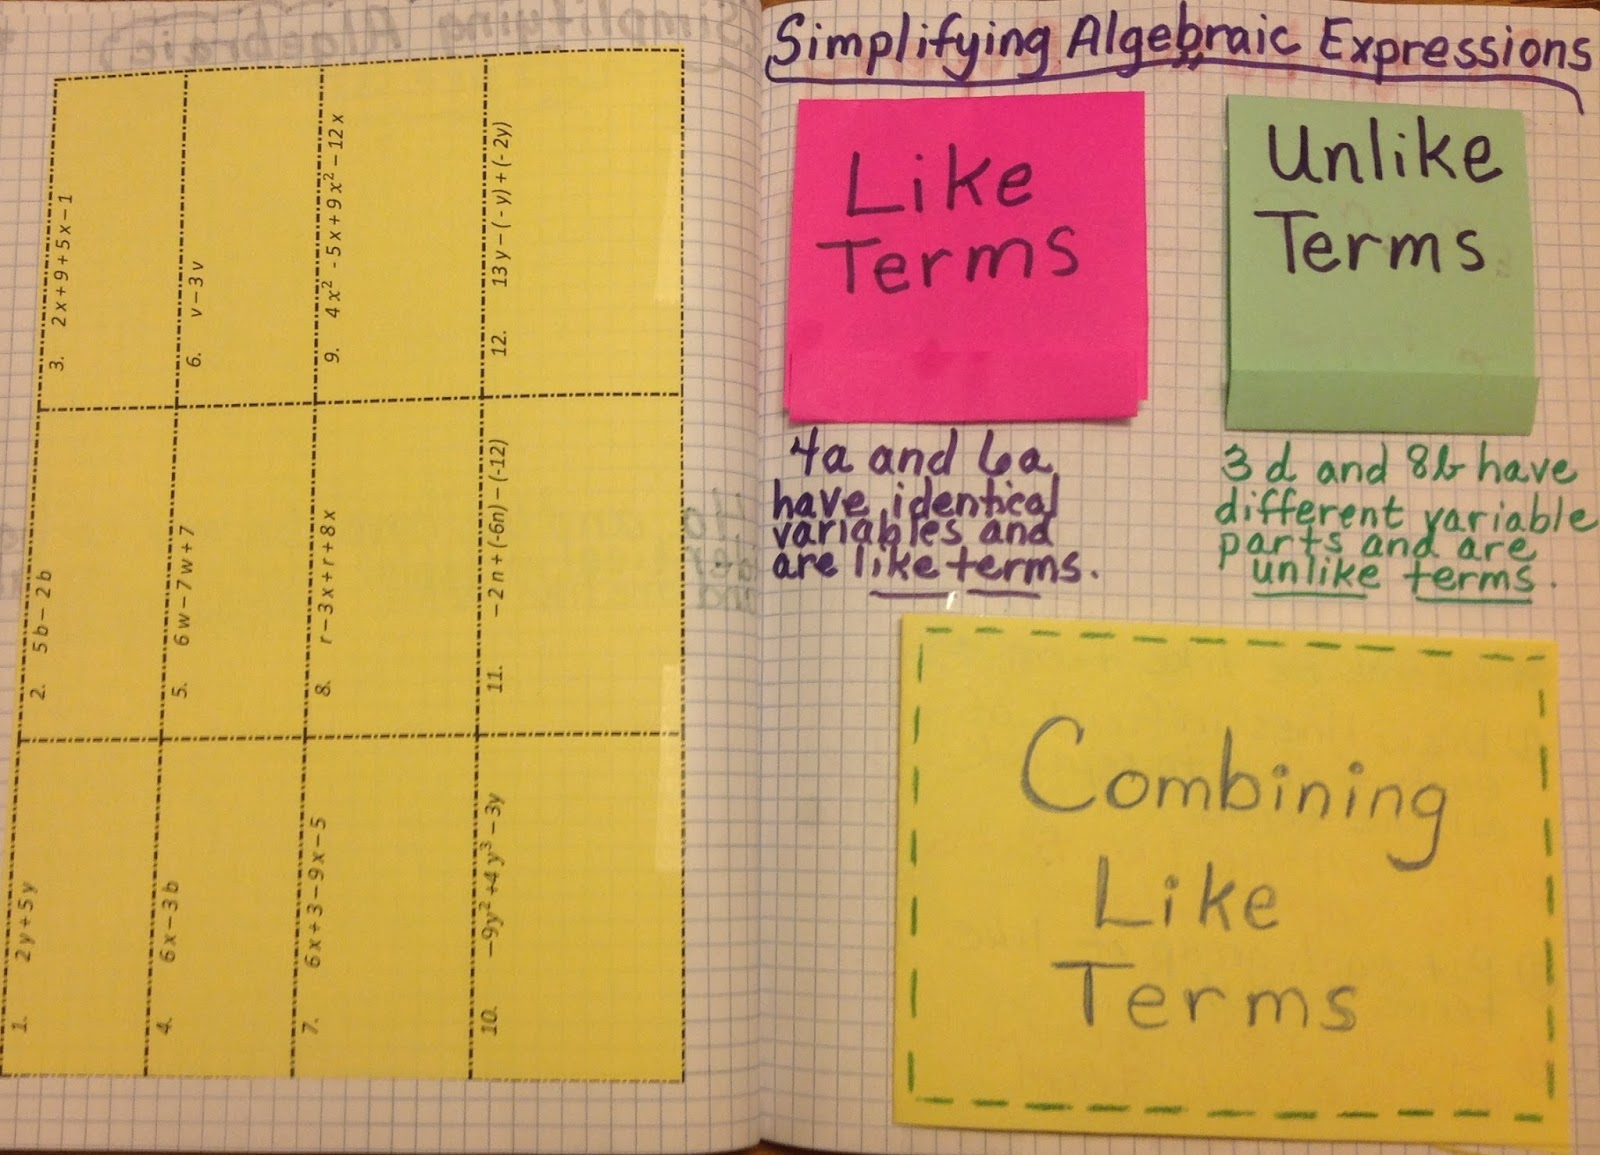 1. 2y+5y
2. 5b−2b
3. 2x+9+5x−1
4. 6x−3b
5. 6w−7w+7
6. v−3v
7. 6x+3−9x−5
8. r−3x+r+8x
9. 4x²-5x+9x²−12x
10. −9y²+4y³−3y
11. −2n+(-6n)−(-12)
12. 13y−(-y)+(-2y)
Simplifying Algebraic Expressions
Like
Terms
4a and 6a
have identical
variables and
are like terms.
Unlike
Terms
3d and 8b have
different variable
parts and are
unlike terms.
Combining
Like
Terms